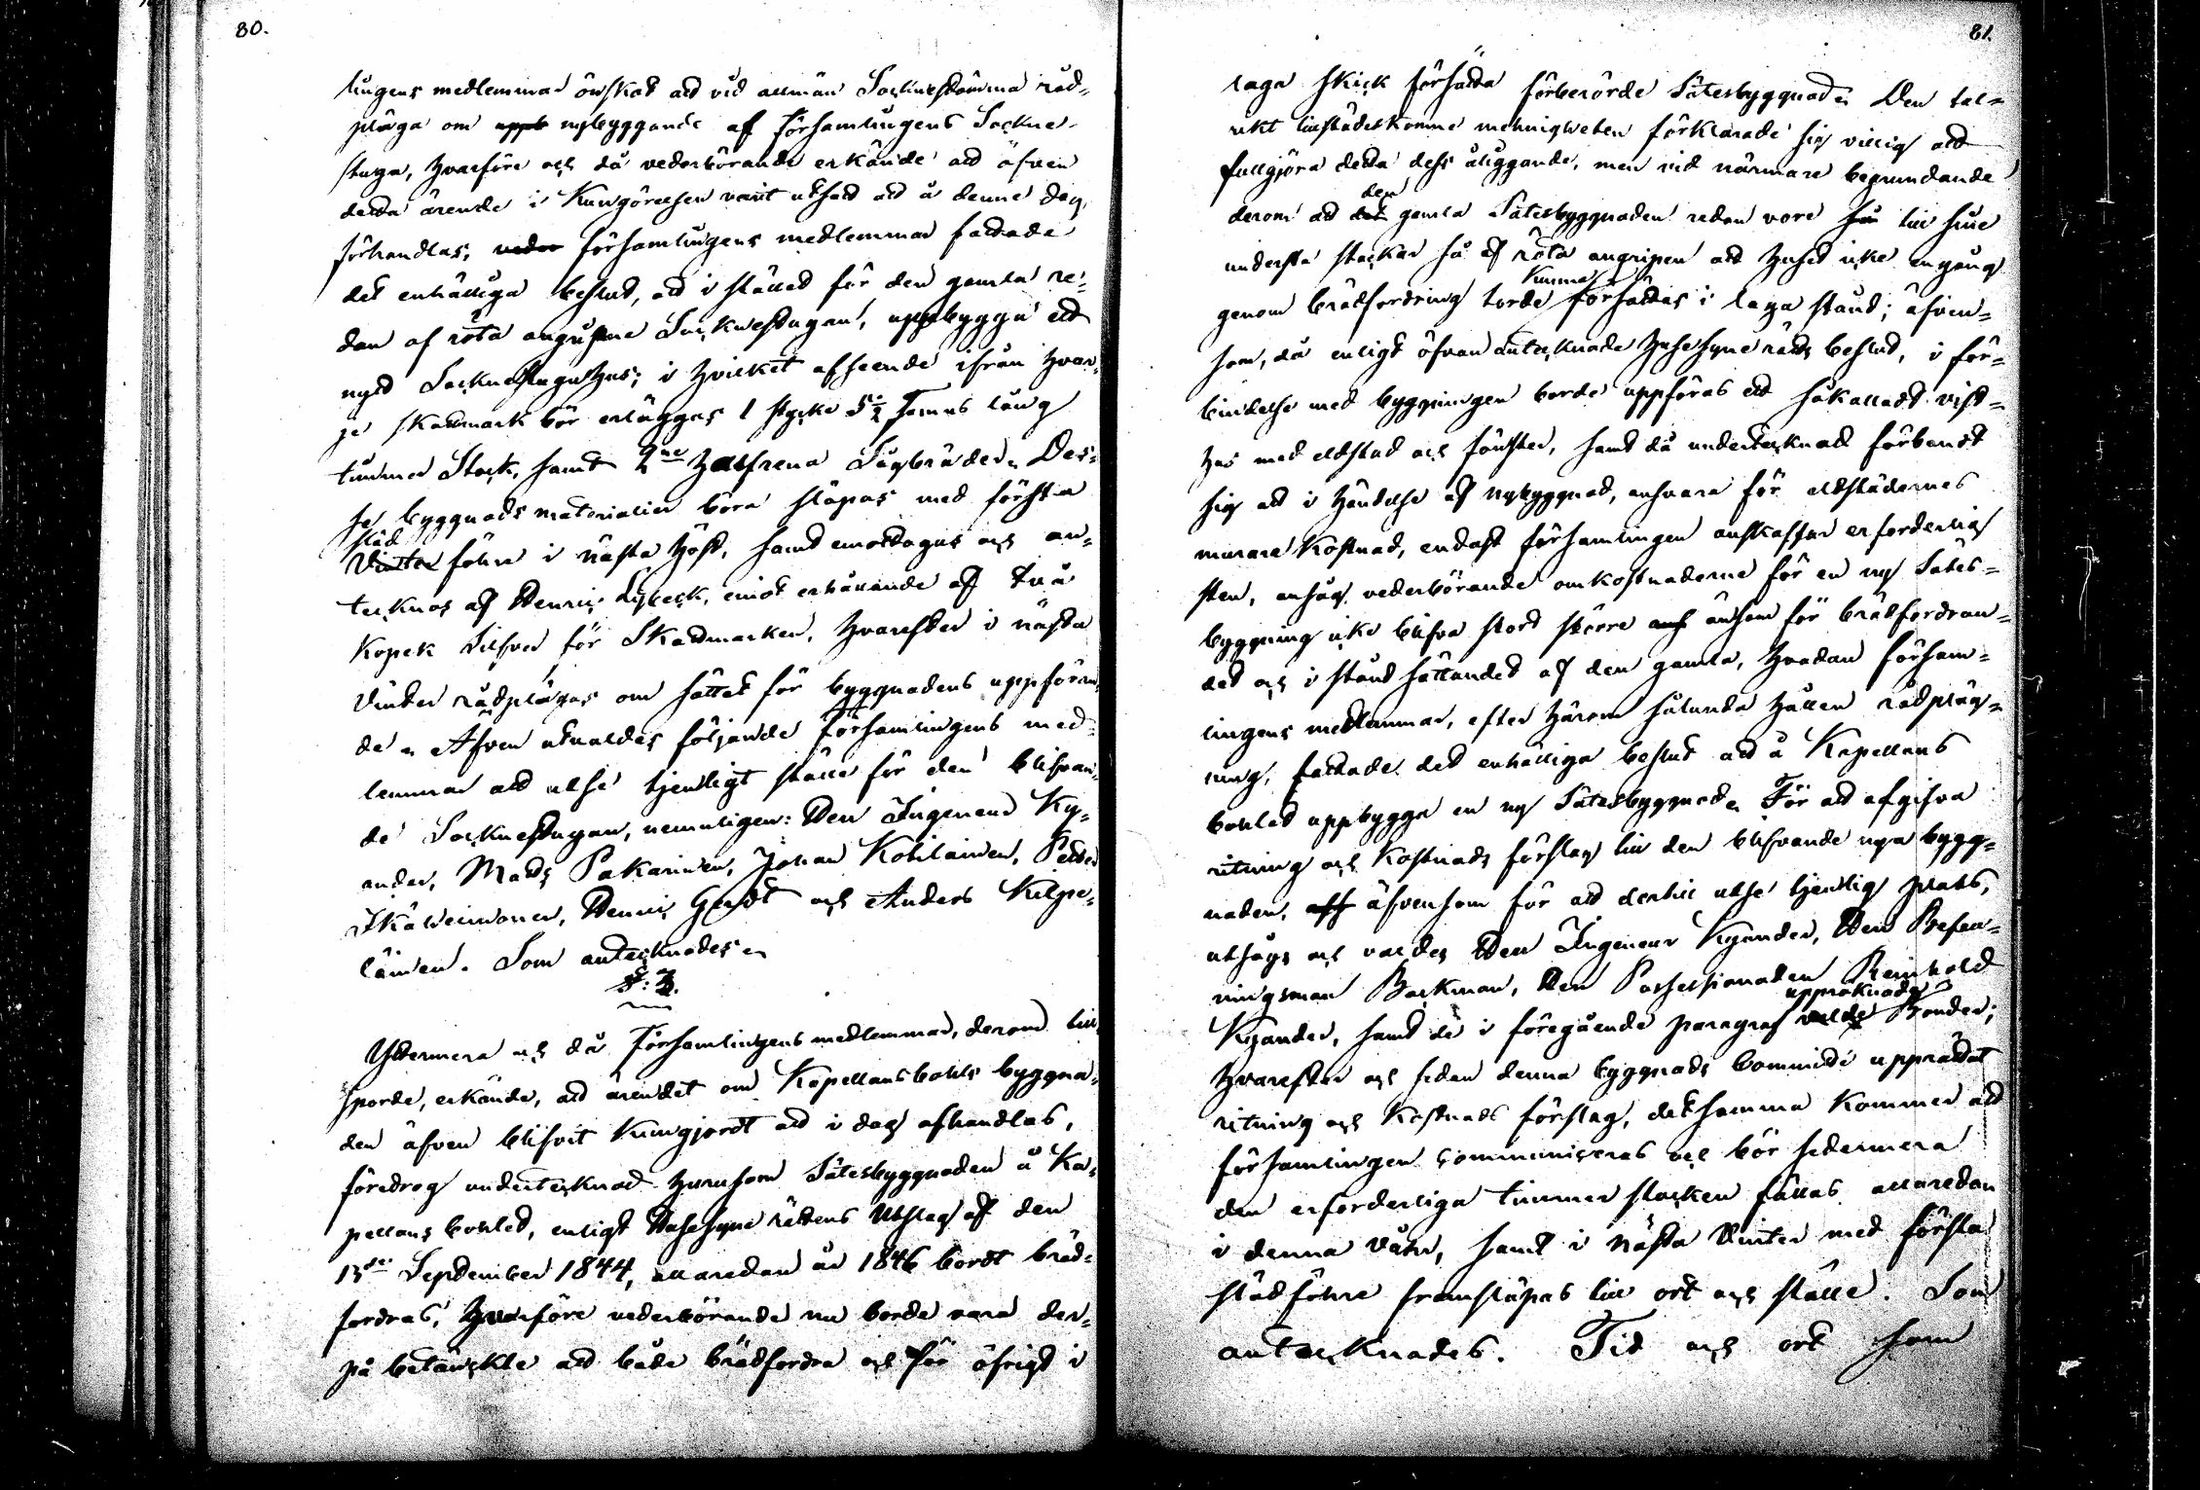 80.
lingens medlemmar önskat att vid allmän Socknestämma råd-
pläga om nybyggande af församlingens Sockne-
stuga, hvarföre och då vederbörande erkände att äfven
detta ärende i Kungörelsen varit utsatt att å denne dag
förhandlas, församlingens medlemmar fattade
det enhälliga beslut, att i stället för den gamla re-
dan af röta angripne Socknestugan, uppbygga ett
nytt Socknestuguhus; i hvilket afseende ifrån hvar-
je skattmark bör erläggas 1 stycke 5½ famns lång
timmer Stock, samt 2ne halfrena Sågbräder. Des-
se byggnads materialier böra släpas med första
släd
Vinter före i nästa höst, samt emottagas och an-
tecknas af Henric Lybeck, emot erhållande af två
Kopek Silfver för Skattmarken, hvarefter i nästa
Vinter rådplägas om sättet för byggnadens uppföran-
de. Äfven utvaldes följande Församlingens med-
lemmar att utse tjenligt ställe för den blifvan-
de Socknestugan, nemligen: Herr Ingenieur Ky-
ander, Matts Pakarinen, Johan Kohlainen, Petter
Ikäheimonen, Henric Gustt och Anders Kilpe-
läinen. Som antecknades.
§: 3.
Yttermera och då Församlingens medlemmar, derom till
sporde, erkände, att ärendet om Kapellansbohls byggna-
den äfven blifvit kungjordt att i dag afhandlas,
föredrog undertecknad hurusom Sätesbyggnaden å Ka-
pellans bohlet, enligt Husesyne rättens Utslag af den
13de September 1844, allaredan år 1846 bordt bräd-
fordras, hvarföre vederbörande nu borde vara der-
på betänckte att både brädfordra och för öfrigt i
81.
laga skick försätta förberörde Sätesbyggnad. Den tal-
rikt tillstädeskomne menigheten förklarade sig villig att
fullgjöra detta dess åliggande, men vid närmare begrundande
den
derom att det gamla Sätesbyggnaden redan vore till sine
understa stockar så af röta angripen att huset icke engång
kunna
genom brädfordring torde försättas i laga stånd; äfven-
som, då enligt ofvan antecknade Husesyne rätts beslut, i för-
bindelse med byggningen borde uppföras ett såkalladt vist-
hus med eldstad och fönster, samt då undertecknad förbandt
sig att i händelse af nybyggnad, ansvara för eldstädernes
murare Kostnad, endast församlingen anskaffar erforderlig
sten, ansåg vederbörande omkostnaderne för en ny Sätes-
byggning icke blifva stort större änsom för brädfordran-
det och i stånd sättandet af den gamla, hvadan försam-
lingens medlemmar, efter härom sålunda hållen rådpläg-
ning, fattade det enhälliga beslut att å Kapellans
bohlet uppbygga en ny Sätesbyggnad. För att afgifva
ritning och Kostnads förslag till den blifvande nya bygg-
naden, äfvensom för att dertill utse tjenlig plats,
utsågs och valdes Herr Ingeneur Kyander, Herr Befall-
ningsman Backman, Herr Possessionaten Reinhold
uppräknade
Kyander, samt de i föregående paragraf valde Bönder;
hvarefter och sedan denna byggnads Committé upprättat
ritning och Kostnads förslag, detsamma kommer att
församlingen communiceras och bör sedermera
den erforderliga timmer stocken fällas allaredan
i denna vår, samt i nästa Vinter med första
slädföre framsläpas till ort och ställe. Som
antecknades. Tid och ort som